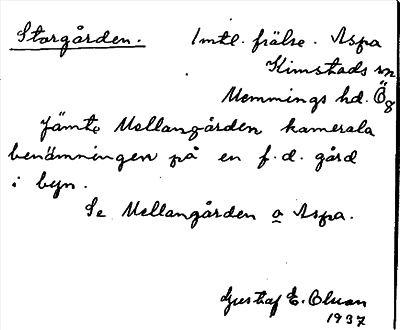 Storgården. 1 mtl. frälse. Aspa
Kimstads sn
Memmings hd. Ög
Jämte Mellangården kamerala
benämningen på en f.d. gård
i byn.
Se Mellangården o Aspa.
Gustaf E. Olsson
1937